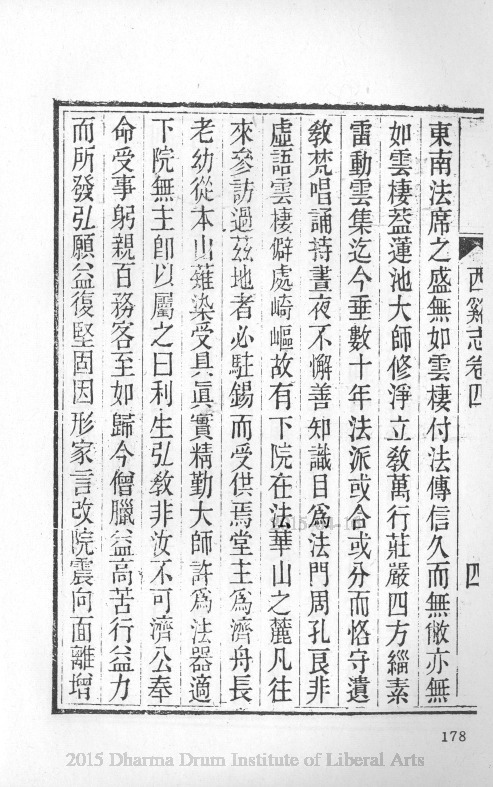 西谿志卷四
四
東南法席之盛無如雲棲付法傳信久而無敝亦無
如雲棲葢蓮池大師修淨立敎萬行莊嚴四方緇素
雷動雲集迄今垂數十年法派或合或分而恪守遺
敎梵唱誦持晝夜不懈善知識目爲法門周孔良非
虛語雲棲僻處崎嶇故有下院在法華山之麓凡往
來參訪過茲地者必駐錫而受供焉堂主爲濟舟長
老幼從本山薙染受具眞實精勤大師許爲法器適
下院無主卽以屬之曰利生弘敎非汝不可濟公奉
命受事躬親百務客至如歸今僧臘益高苦行益力
而所發弘願益復堅固因形家言改院震向面離增
178
2015 Dharma Drum Institute of Liberal Arts